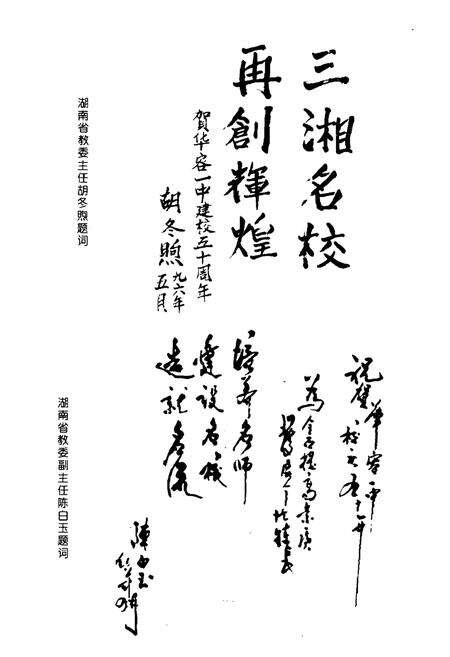 三湘名校
再創輝煌
贺华容一中建校五十周年
胡冬煦
九六年
五月
湖南省教委主任胡冬煦题词
祝賀華容一中
校庆五十一世
為全面提高素质
培养名师
建设名校
造就名流
陳白玉
湖南省教委副主任陈白玉题词